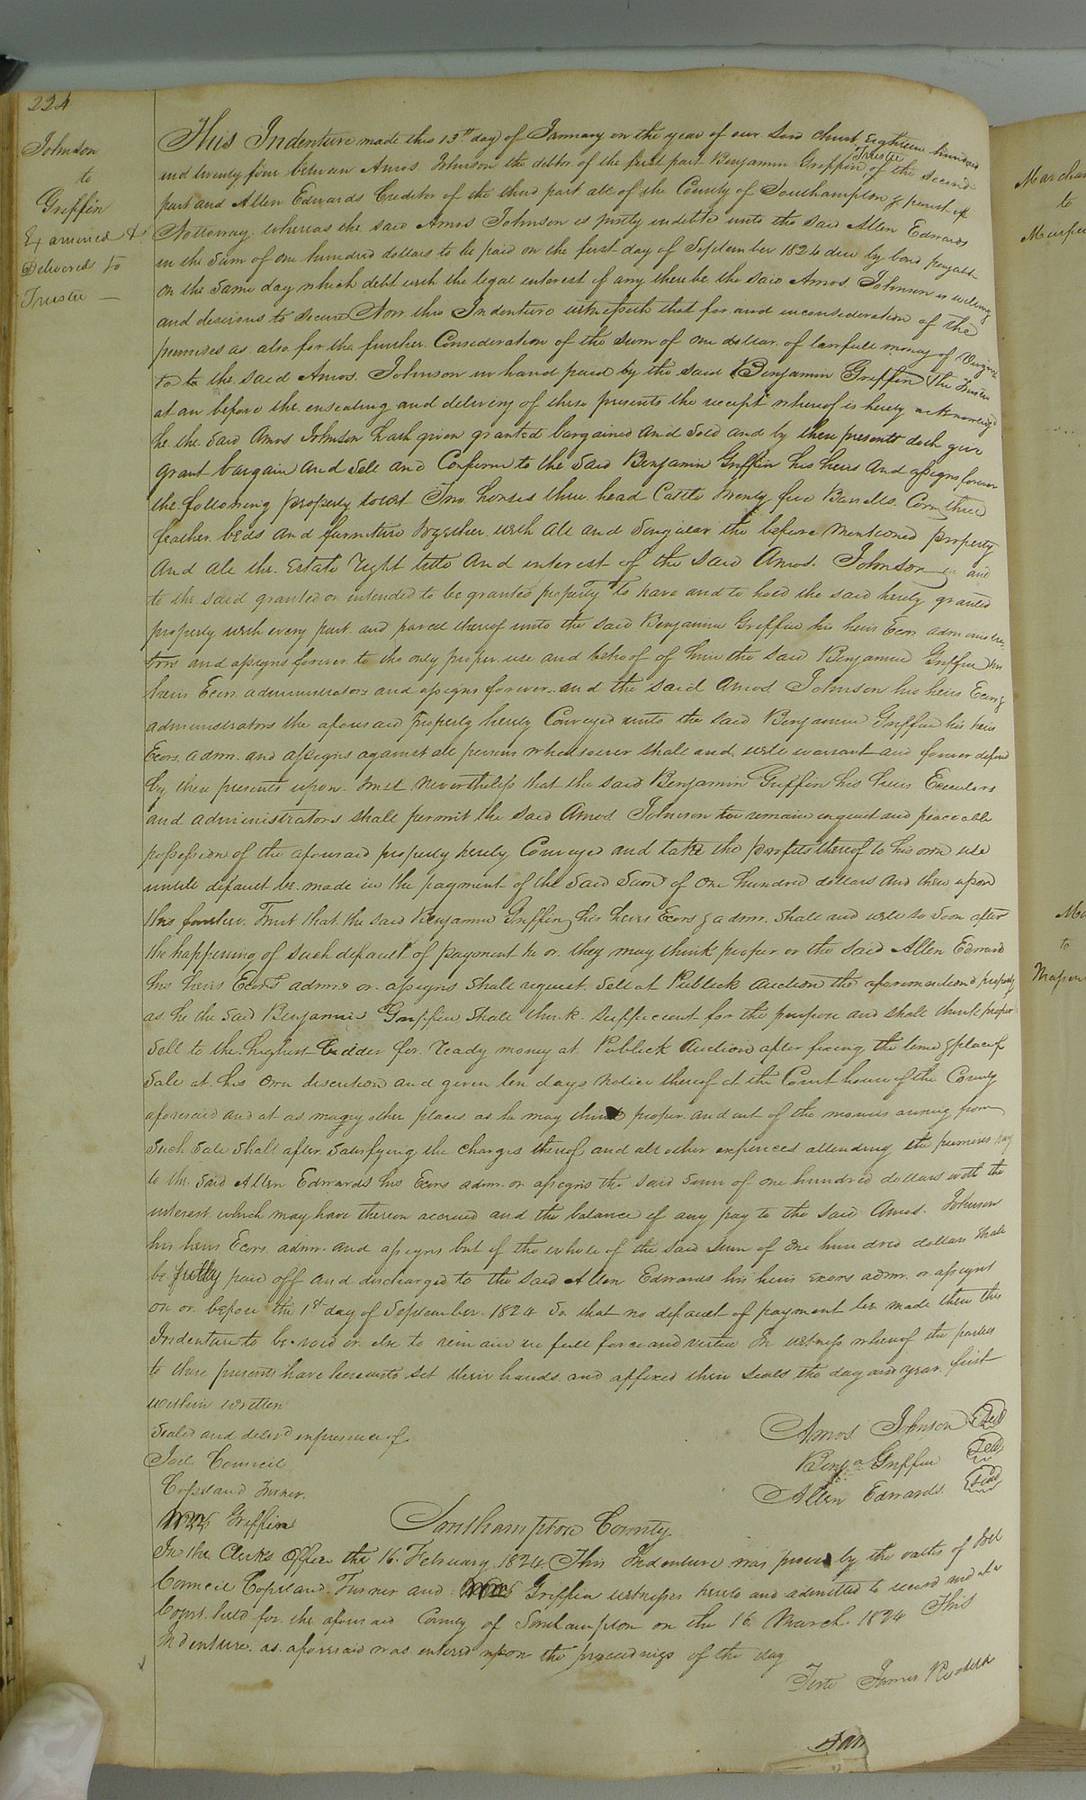 224
Johnson
to
Griffin
Examined &
Delivered to
Trustee —
This Indenture made this 13th day of January on the year of our Lord Christ Eighteen hundred
and twenty four between Amos Johnson the debtor of the first part Benjamin Griffin Trustee of the second
part and Allen Edwards Creditor of the third part all of the County of Southampton & parish of
Nottoway. Whereas the said Amos Johnson is justly indetted unto the said Allen Edwards
in the Sum of one hundred dollars to be paid on the first day of September 1824 due by bond payable
on the same day which debt with the legal interest if any there be the said Amos Johnson is willing
and desirous to secure Now this Indenture witnesseth that for and inconsideration of the
premises as also for the further Consideration of the sum of one dollar of lawfull money of Virginia
to to the said Amos. Johnson in hand paid by the said Benjamin Griffin the Trustee
at an before the ensealing and delivery of these presents the receipt whereof is hereby acknowledged
he the said Amos Johnson hath given granted bargained and sold and by these presents doth give
grant bargain and Sell and Confirm to the said Benjamin Griffin his heirs and assigns forever
the following property towit Two horses three head Cattle twenty five Barrells. Corn three
feather beds and furniture together with all and Singular the before mentioned property
And all the Estate right title and interest of the said Amos. Johnson in and
to the said granted or intended to be granted property To have and to hold the said hereby granted
property with every part and parcel thereof unto the said Benjamin Griffin his heirs Exors administra-
tors and assigns forever to the only proper use and behoof of him the said Benjamin Griffin his
heirs Exors administrators and assigns forever and the said Amos Johnson his heirs Exors &
administrators the aforesaid property hereby Conveyed unto the said Benjamin Griffin his heirs
Exors. adm. and assigns against all persons whatsoever shall and will warrant and forever defend
by these presents upon Trust Nevertheless that the said Benjamin Griffin his heirs Executors
and administrators shall permit the said Amos Johnson to remain in quiet and peaceable
possession of the aforesaid property hereby Conveyed and take the profits thereof to his own use
untill default be made in the payment of the said Sum of one hundred dollars and then upon
this further Trust that the said Benjamin Griffin his heirs Exors & adm. shall and will so soon after
the happening of such default of payment he or they may think proper or the said Allen Edwards
his heirs Exors adms or assigns shall request, sell at Publick auction the aforementioned property
as he the said Benjamin Griffin shall think sufficient for the purpose and shall think proper
Sell to the highest bidder for ready money at Publick Auction after fixing the time & place of
Sale at his own discretion and given ten days notice thereof at the Court house of the County
aforesaid and at as many other places as he may think proper and out of the monies arising from
Such Sale Shall after Satisfying the charges thereof and all other expences attending the premises pay
to the said Allen Edwards his Exors adm. or assigns the said Sum of one hundred dollars with the
interest which may have thereon accrued and the balance if any pay to the said Amos. Johnson
his heirs Exors. adm. and assigns but if the whole of the said sum of one hundred dollars shall
be fully paid off and discharged to the said Allen Edwards his heirs exors adm. or assigns
on or before the 1st day of September 1824 So that no default of payment be made then this
Indenture to be void or else to remain in full force and virtue In witness whereof the parties
to these presents have hereunto set their hands and affixed their Seals the day and year first
within written
Sealed and deliv'd in presence of
Amos Johnson Seal
Joel Council
Benja Griffin Seal
Copeland Turner.
Allen Edwards. Seal
Griffin
Southampton County
In the Clerks Office the 16. February 1824 This Indenture was proved by the oaths of Joel
Council Copeland Turner and Griffin witnesses hereto and admitted to record and at a
Court held for the aforesaid County of Southampton on the 16 March 1824 This
Indenture as aforesaid was entered upon the proceedings of the day
Teste James Rochelle
to
to